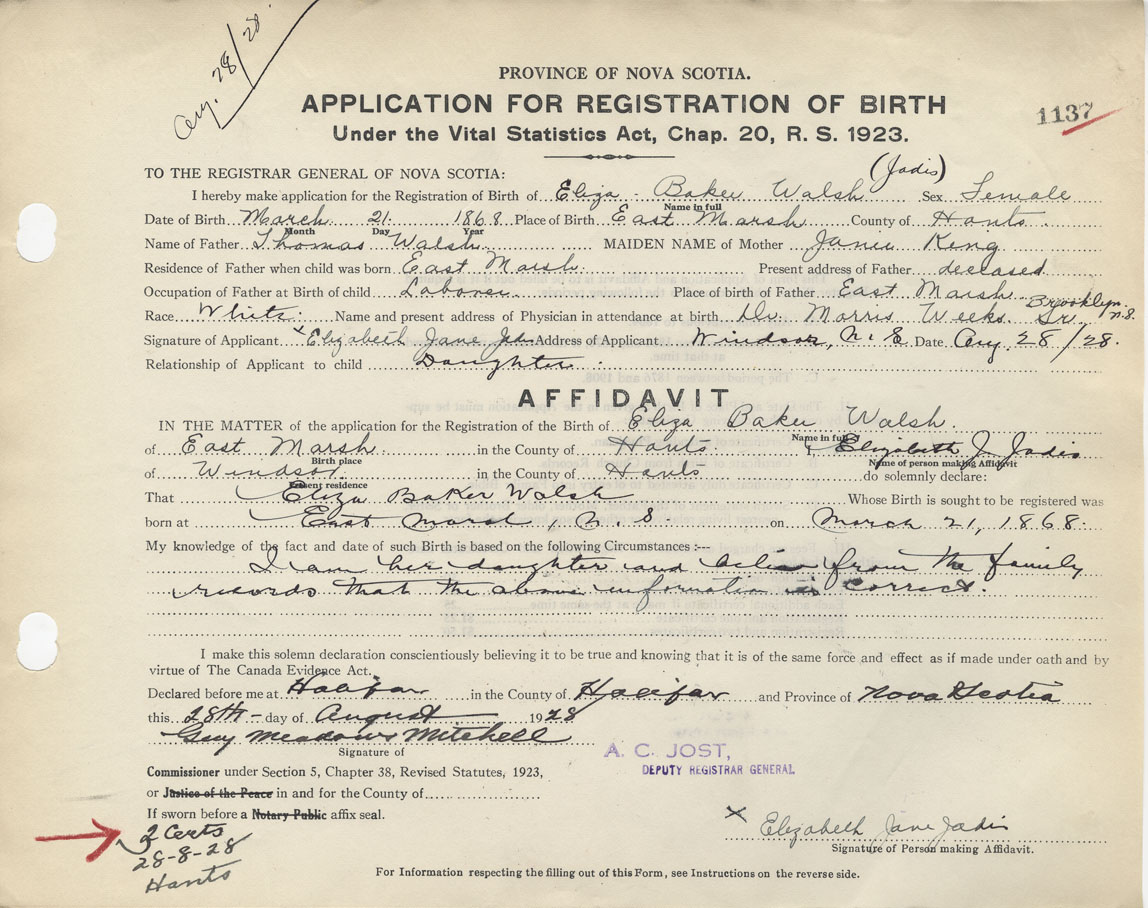 Aug. 28/28.
PROVINCE OF NOVA SCOTIA.
APPLICATION FOR REGISTRATION OF BIRTH
1137
Under the Vital Statistics Act, Chap. 20, R. S. 1923.
TO THE REGISTRAR GENERAL OF NOVA SCOTIA:
(Jadis)
I hereby make application for the Registration of Birth of Eliza Baker Walsh Sex Female
Name in full
Date of Birth March 21 1868 Place of Birth East Marsh County of Hants
Month Day Year
Name of Father Thomas Walsh MAIDEN NAME of Mother King
Residence of Father when child was born East Marsh Present address of Father deceased
Occupation of Father at Birth of child Laborer Place of birth of Father East Marsh
Brooklyn N.S.
Race White Name and present address of Physician in attendance at birth Dr. Morris Weeks Sr.
Signature of Applicant x Elizabeth Jane Address of Applicant Windsor, N. S. Date Aug 28/28.
Relationship of Applicant to child Daughter
AFFIDAVIT
IN THE MATTER of the application for the Registration of the Birth of Eliza Baker Walsh
Name in full
of East Marsh in the County of Hants I Elizabeth J. Jadis
Birth place Name of person making Affidavit
of Windsor in the County of Hants do solemnly declare:
Present residence
That Eliza Baker Walsh Whose Birth is sought to be registered was
born at East Marsh, N. S. on March 21, 1868.
My knowledge of the fact and date of such Birth is based on the following Circumstances :---
I am her daughter and believe from the family
records that the above information is correct.
I make this solemn declaration conscientiously believing it to be true and knowing that it is of the same force and effect as if made under oath and by
virtue of The Canada Evidence Act.
Declared before me at Halifax in the County of Halifax and Province of Nova Scotia
this 28th day of August 1928
Guy Meadows Mitchell
Signature of
A. C. JOST,
DEPUTY REGISTRAR GENERAL
Commissioner under Section 5, Chapter 38, Revised Statutes, 1923,
or Justice of the Peace in and for the County of
If sworn before a Notary Public affix seal.
2 Certs
28-8-28
Hants
x Elizabeth Jane Jadis
Signature of Person making Affidavit.
For Information respecting the filling out of this Form, see Instructions on the reverse side.